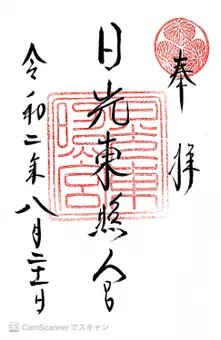 奉拝
日光東照宮
令和二年八月二十一日
CamScannerでスキャン